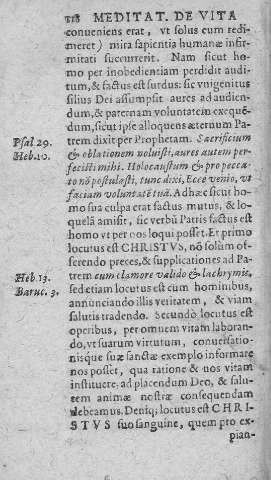 118 MEDITAT. DE VITA
conueniens erat, vt solus eum redi-
meret) mira sapientia humanæ infir-
mitati succurrerit. Nam sicut ho
mo per inobedientiam perdidit audi-
tum, & factus est surdus: sic vnigenitus
filius Dei assumpsit aures ad audien-
dum, & paternam voluntatem exequē-
dum, sicut ipse alloquens æternum Pa-
trem dixit per Prophetam. Sacrificium
Psal 29.
& oblationem noluisti, aures autem per-
Heb. 10.
fecisti mihi. Holocaustum & pro pecca-
to nō postulasti, tunc dixi, Ecce venio, vt
faciam voluntatē tuā. Ad hæc sicut ho-
mo sua culpa erat factus mutus, & lo-
quelā amisit, sic verbū Patris factus est
homo vt per nos loqui posset. Et primo
locutus est CHRISTVS, nō solùm of-
ferendo preces, & supplicationes ad Pa-
trem cum clamore valido & lachrymis,
Heb. 13.
sed etiam locutus est cum hominibus,
Baruc. 3.
annūciando illis veritatem, & viam
salutis tradendo. Secundò locutus est
operibus, per omnem vitam laboran-
do, vt suarum virtutum, conuersatio-
nisque suæ sanctæ exemplo informare
nos posset, qua ratione & nos vitam
instituere, ad placendum Deo, & salu-
tem animæ nostræ consequendam
debeamus. Deniq; locutus est CHRI-
STVS suo sanguine, quem pro ex
pian-